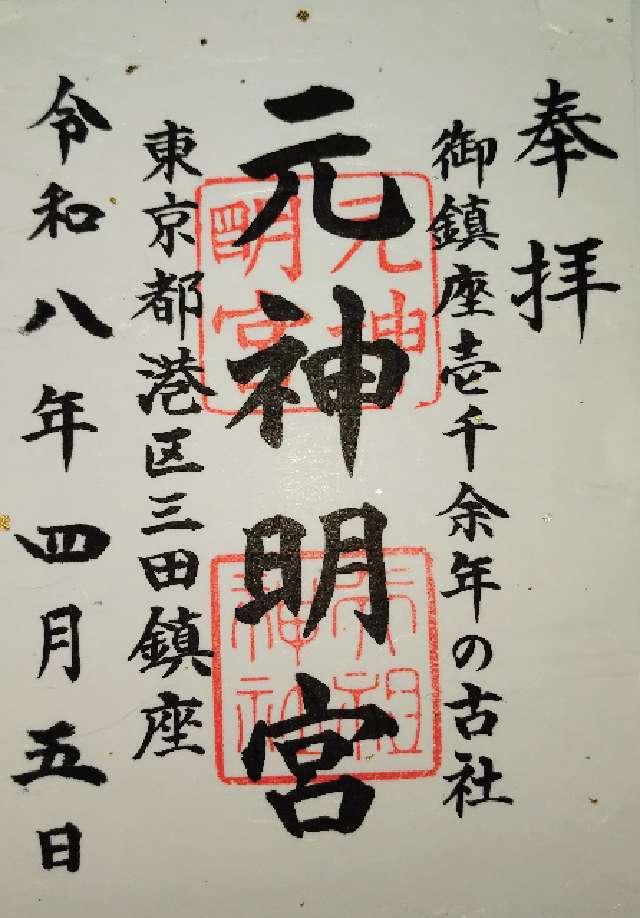 奉拝
御鎮座壱千余年の古社
元神明宮
元神明宮
東京都港区三田鎮座
令和八年四月五日